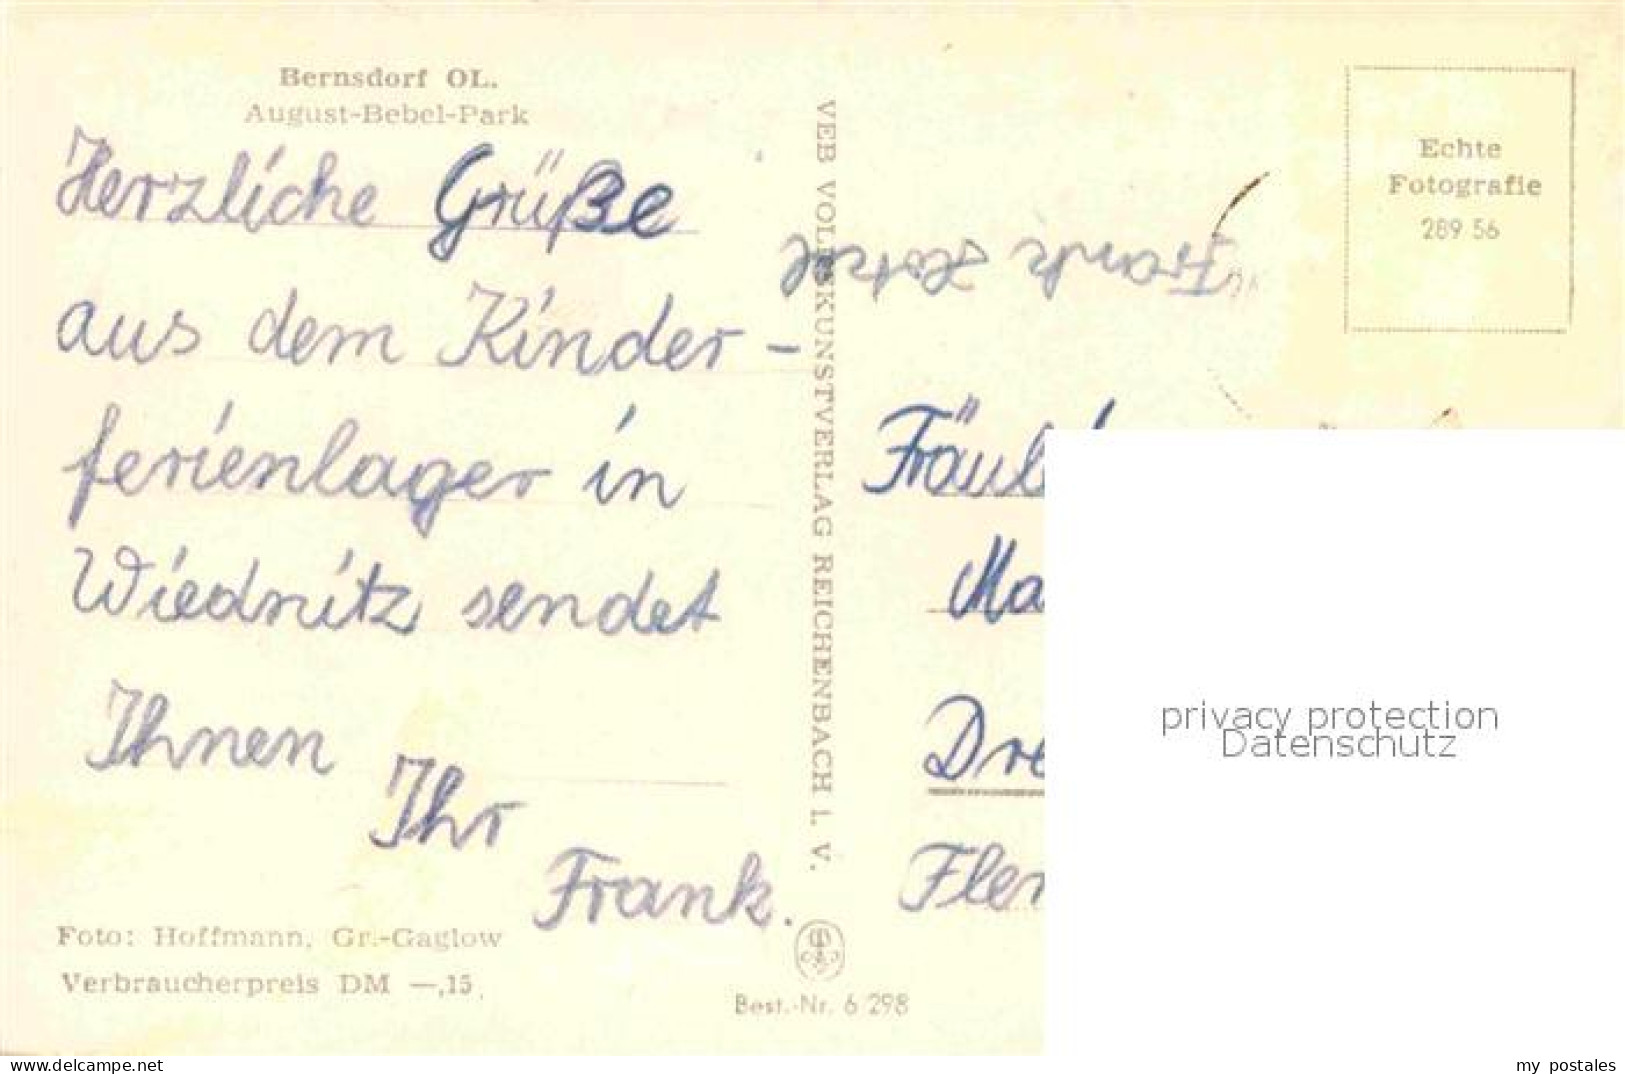 Bernsdorf OL.
August-Bebel-Park
Herzliche Grüße
aus dem Kinder-
ferienlager in
Wiednitz sendet
Ihnen
Ihr
Frank.
Foto: Hoffmann, Gr.-Gaglow
Verbraucherpreis DM —,15
VEB VOLKSKUNSTVERLAG REICHENBACH i. V.
Best.-Nr. 6 298
Frank
Echte
Fotografie
289 56
Fräul
Ma
Dre
Fler
privacy protection
Datenschutz
delcampe.net
my_postales